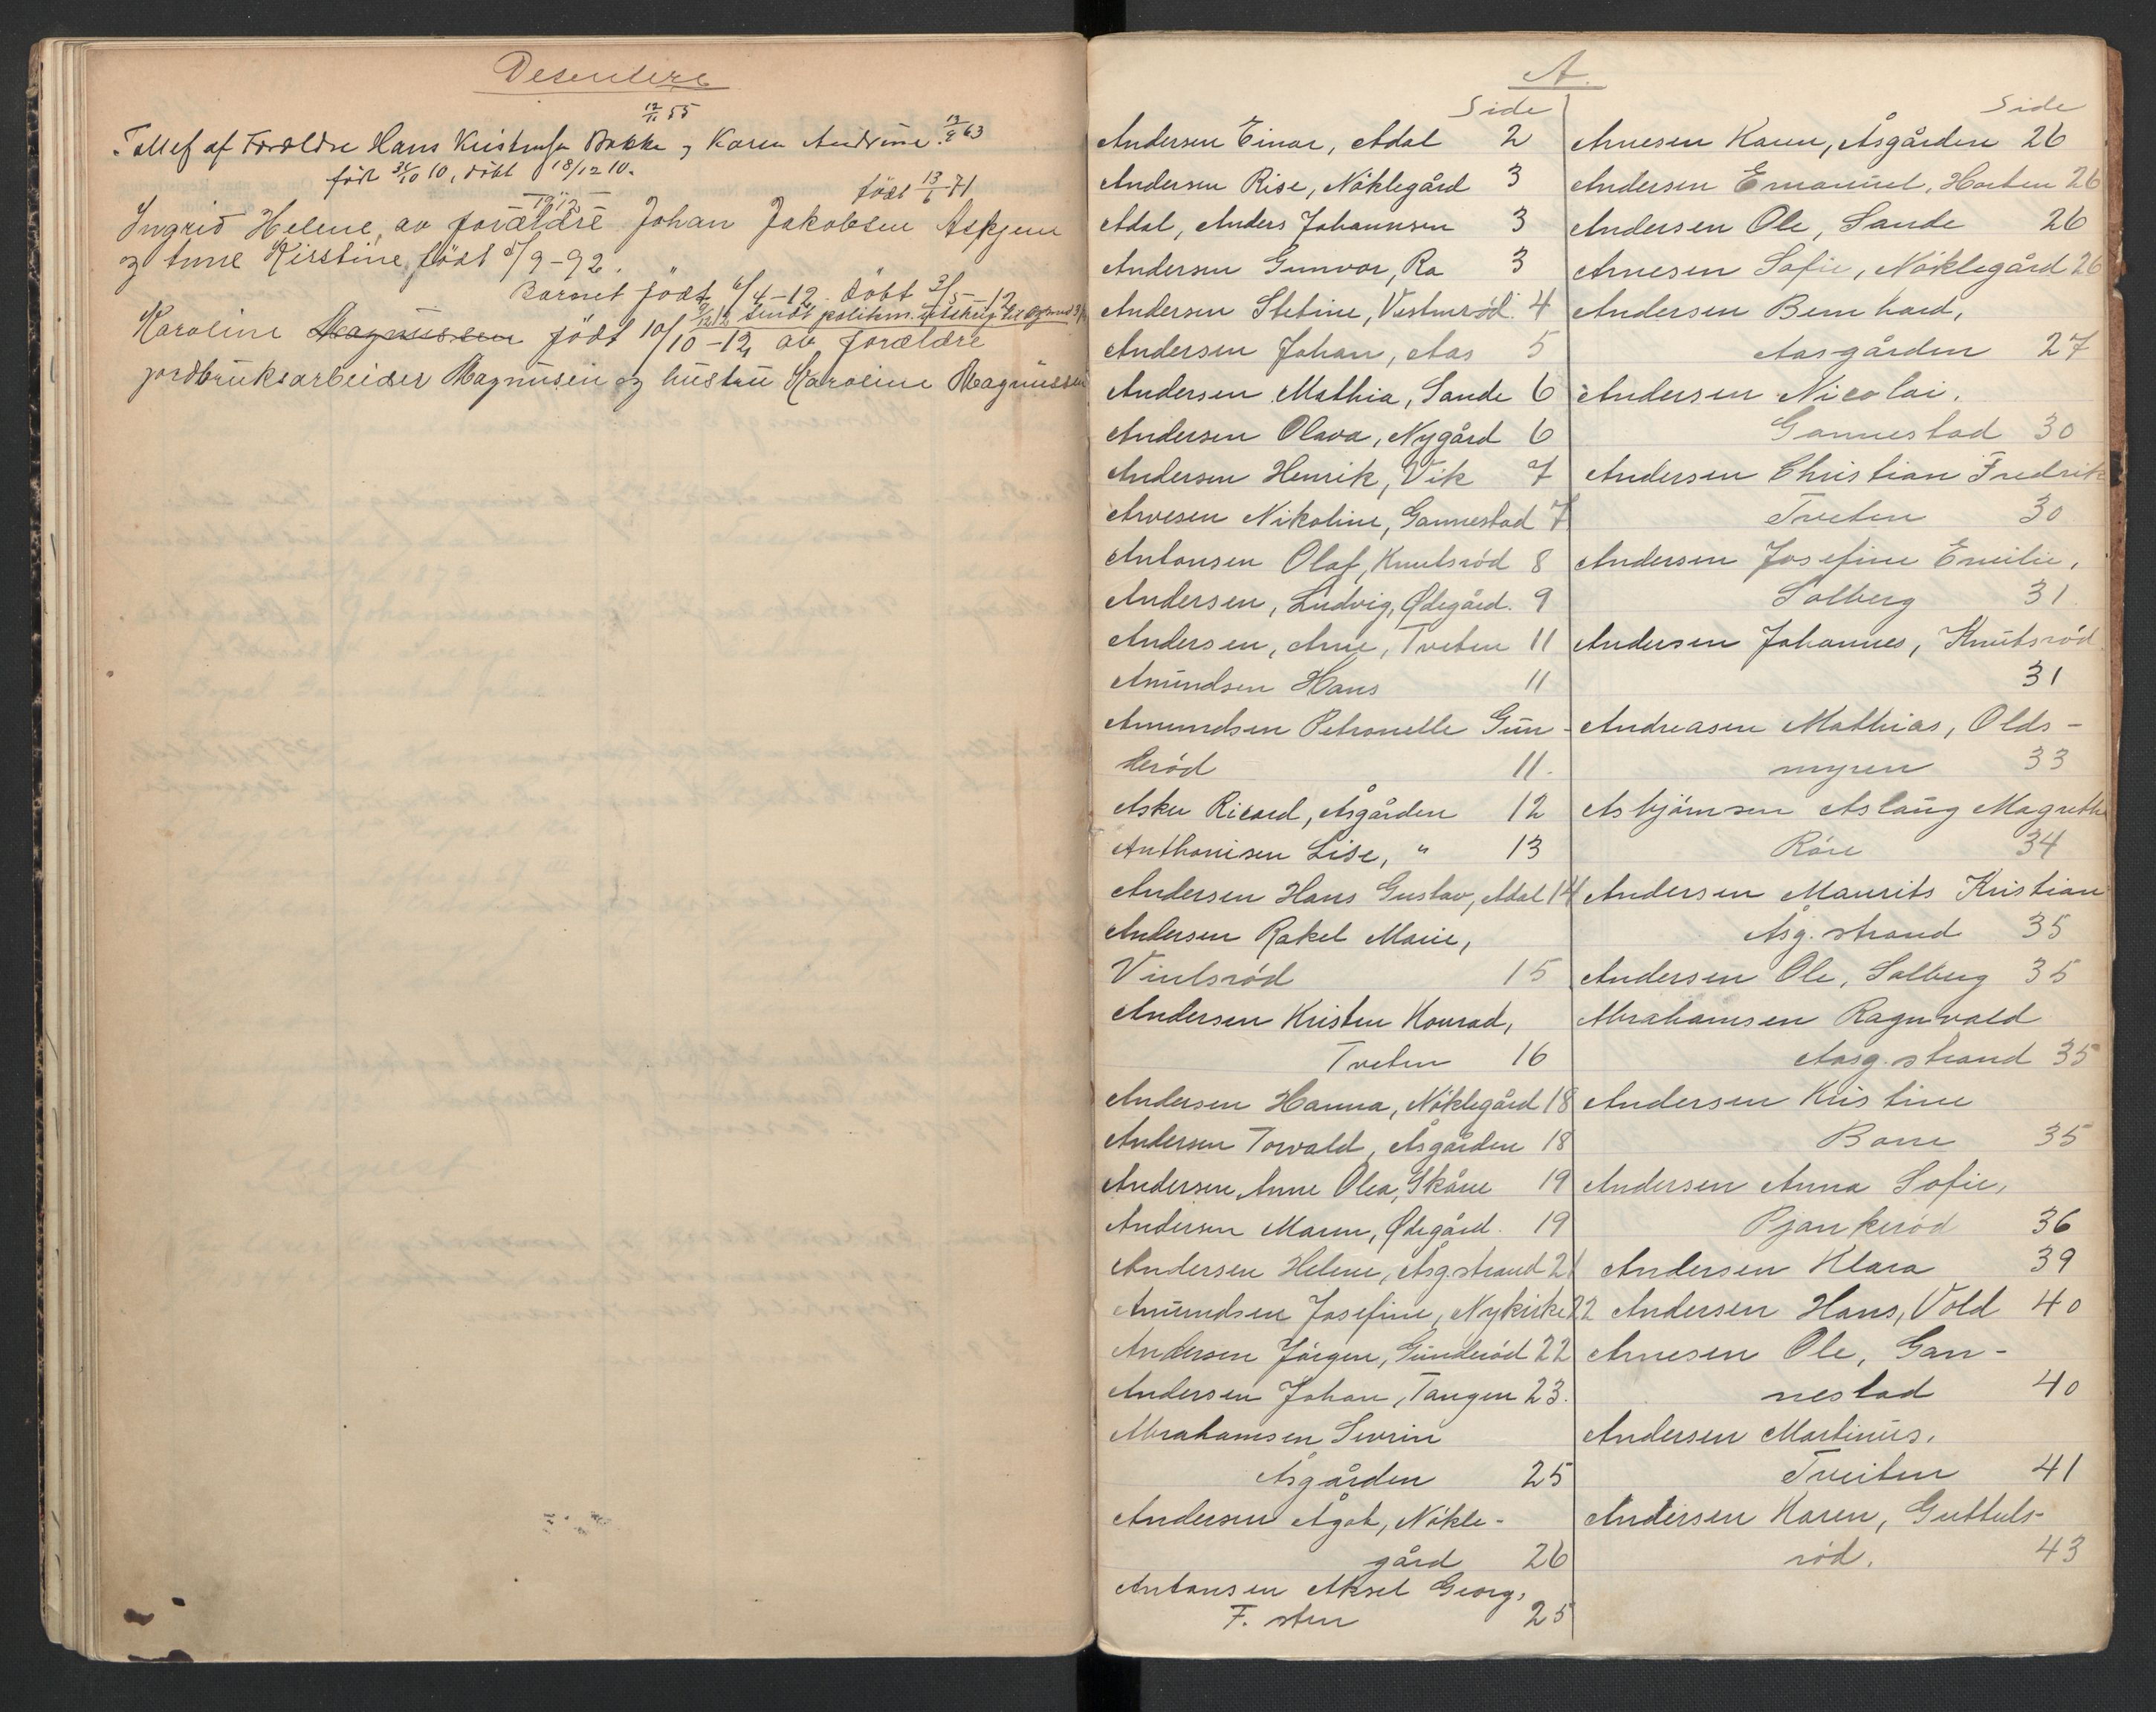 12/11 55
Tollef af Forældre Hans Kristensen Bakke og Karen Andrine 13/9 63
født 26/10 10, døbt 18/12 10.
1912 født 13/6 71
Ingrid Helene, av forældre Johan Jakobsen Askjem
og Anne Kirstine født 5/9-92.
Barnet født 6/4-12. døbt 3/5-12
sendt politim.
Karoline Magnussen født 10/10-12, av forældre
jordbruksarbeider Magnusen og hustru Karoline Magnussen
A.
Side
Andersen Einar, Adal 2
Andersen Rise, Nøklegård 3
Adal, Anders Johannsen 3
Andersen Gunvor, Ra 3
Andersen Stetine, Vestmrød. 4
Andersen Johan, Aas 5
Andersen Mathia, Sande 6
Andersen Olava, Nygård 6
Andersen Henrik, Vik 7
Arvesen Nikoline, Gannestad 7
Antonsen Olaf, Knutsrød 8
Andersen, Ludvig, Ødegård. 9
Andersen, Arne, Tveten 11
Amundsen Hans 11
Amundsen Petronelle Gun-
derød 11.
Asker Ricard, Åsgården 12
Anthonisen Lise, " 13
Andersen Hans Gustav, Adal 14
Andersen Rakel Marie,
Vintsrød 15
Andersen Kristen Konrad,
Tveten 16
Andersen Hanna, Nøklegård 18
Andersen Torvald, Åsgården 18
Andersen, Anne Olea, Skåne 19
Andersen Maren, Ødegård. 19
Andersen Helene, Åsg.strand 21
Amundsen Josefine, Nykirke 22
Andersen Jørgen, Gunderød 22
Andersen Johan, Tangen 23.
Abrahamsen Sevrin
Åsgården 25
Andersen Ågot, Nøkle-
gård 26
Antonsen Aksel Georg,
F. sten 25
Side
Arnesen Karen, Åsgården 26
Andersen Emanuel, Horten 26
Andersen Ole, Sande 26
Arnesen Sofie, Nøklegård 26
Andersen Bernhard,
Aasgården 27
Andersen Nicolai,
Gannestad 30
Andersen Christian Fredrik
Tveten 30
Andersen Josefine Emilie,
Solberg 31
Andersen Johannes, Knutsrød
31
Andreasen Mathias, Olds-
myren 33
Asbjørnsen Aslaug Magrethe
Røre 34
Andersen Maurits Kristian
Åsg.strand 35
Andersen Ole, Solberg 35
Abrahamsen Ragnvald
Aasg.strand 35
Andersen Kristine
Borre 35
Andersen Anna Sofie,
Bjankerød 36
Andersen Klara 39
Andersen Hans, Vold 40
Arnesen Ole, Gan-
nestad 40
Andersen Martinus,
Tveiten 41
Andersen Karen, Guttuls-
rød. 43